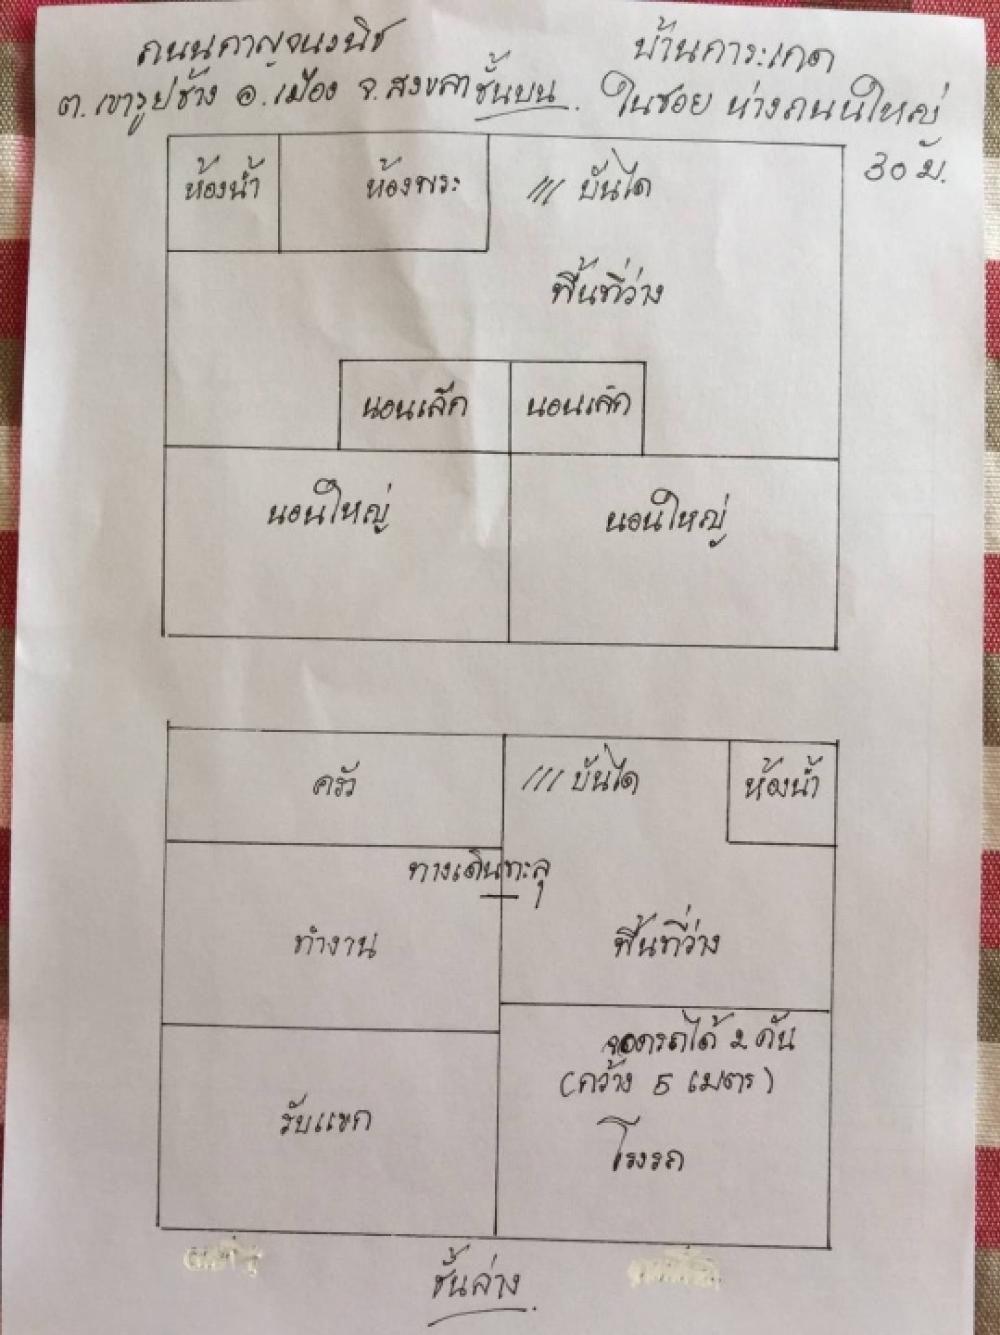 ถนนกาญจนวนิช
บ้านการะเกด
ต.เขารูปช้าง อ.เมือง จ.สงขลา ชั้นบน. ในซอย ห่างถนนใหญ่
30 ม.
ห้องน้ำ
ห้องพระ
/// บันได
พื้นที่ว่าง
นอนเล็ก
นอนเล็ก
นอนใหญ่
นอนใหญ่
ครัว
/// บันได
ห้องน้ำ
ทางเดินทะลุ
ทำงาน
พื้นที่ว่าง
จอดรถได้ 2 คัน
(กว้าง 5 เมตร)
รับแขก
โรงรถ
ชั้นล่าง.